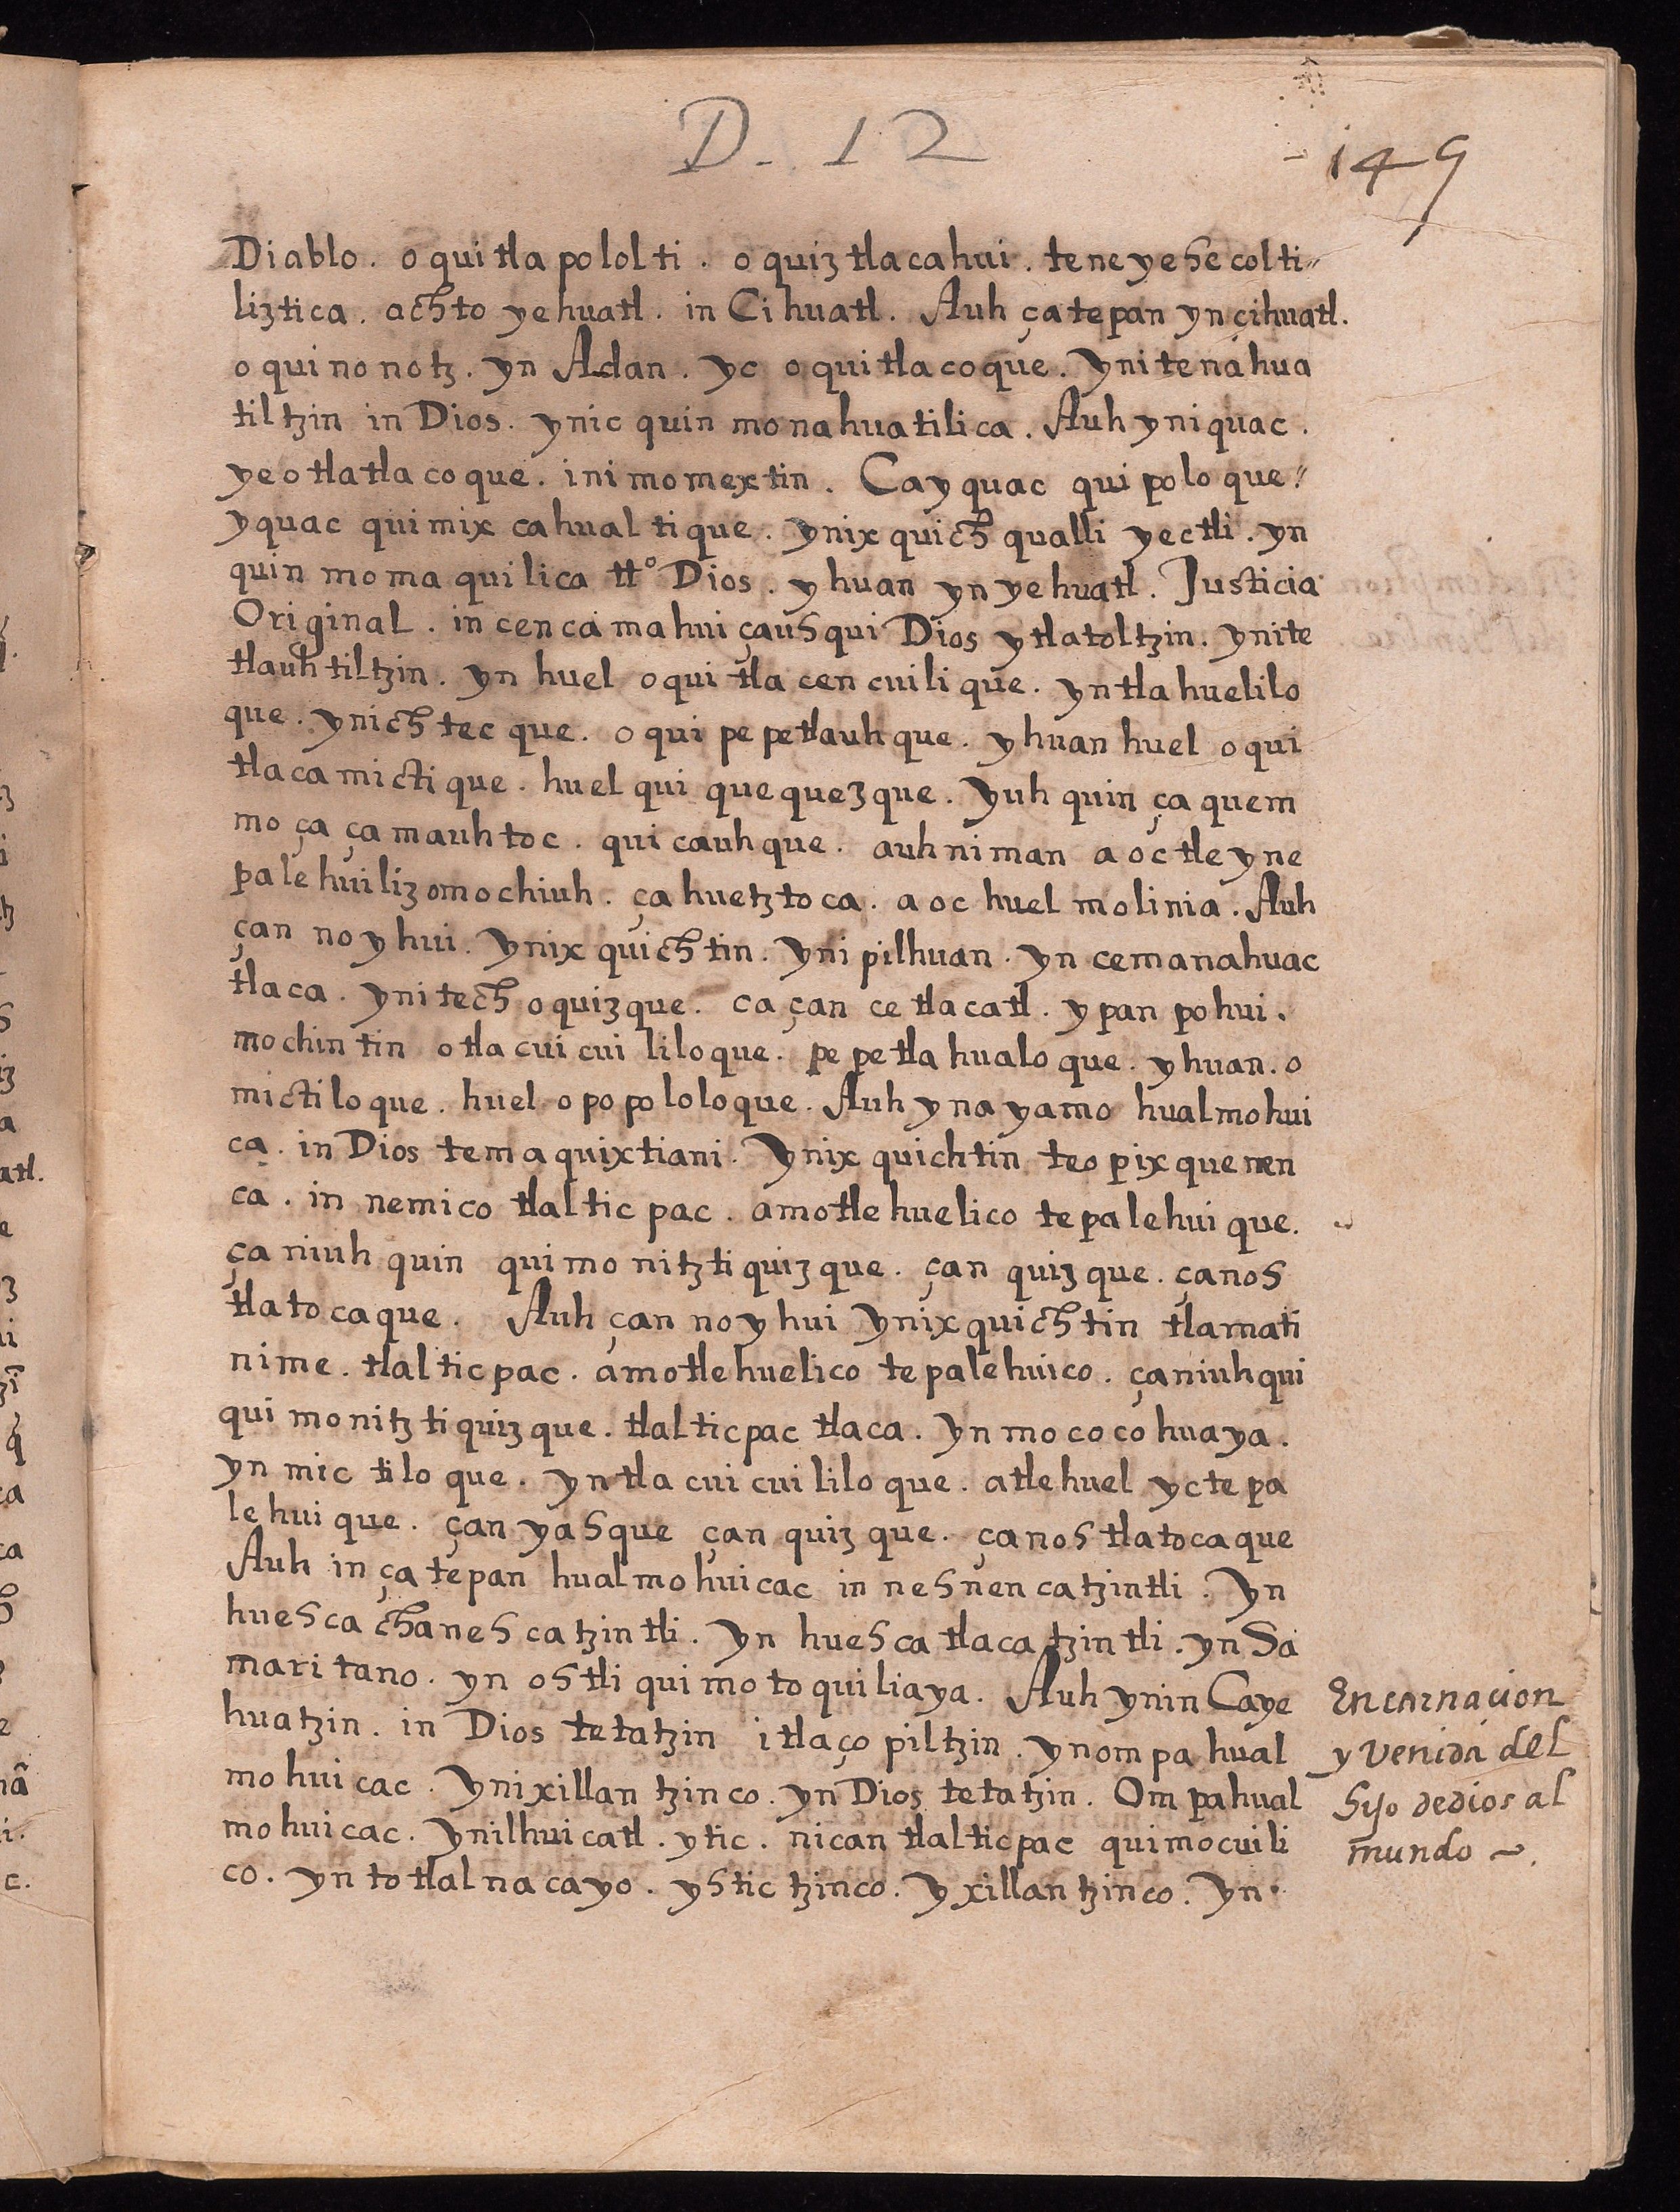 D. 12
149
Diablo. o qui tla pololti. o quiz tlacahui. te ne yehecolti=
liztica. achto yehuatl. in Cihuatl. Auh çatepan yn çihuatl.
o qui no notz. yn Adan. yc o qui tla coque. yni tenahua
tiltzin in Dios. ynic quin monahuatilica. Auh yniquac.
ye o tlatla coque. ini momextin. Ca yquac qui polo que=
yquac quimix cahual tique. ynix quich qualli yectli. yn
quin moma quilica tto Dios. yhuan yn yehuatl. Justicia
Original. in cenca mahui çauhqui Dios ytlatoltzin. ynite
tlauhtiltzin. yn huel oqui tla cen cuili que. yn tlahuelilo
que. ynichtec que. o qui pe petlauhque. yhuan huel oqui
tlaca micti que. huel qui quequezque. Yuh quin ça quem
mo ça çamauhtoc. qui cauhque. auh niman a oc tle yne
palehuiliz omochiuh. ça huetztoca. a oc huel molinia. Auh
çan no yhui. ynix quichtin. yni pilhuan. yn cemanahuac
tlaca. ynitech oquizque. ca çan ce tlacatl. ypan pohui.
mochintin otla cui cui liloque. pe petla hualo que. yhuan. o
mictiloque. huel o po pololoque. Auh yn ayamo hualmohui
ca. in Dios temaquixtiani. Ynix quichtin teopixque nen
ca. in nemico tlaltic pac. amotle huelico tepalehui que.
ça niuh quin quimo nitztiquizque. çan quizque. çan oh
tlatocaque. Auh çan no yhui ynix quichtin tlamati
nime. tlalticpac. amotle huelico tepalehuico. çaniuhqui
qui monitz tiquizque. tlalticpac tlaca. yn mo cocohuaya.
yn mic tilo que. yn tla cui cui lilo que. atle huel yc te pa
lehui que. çan yahque çan quiz que. çan oh tlatocaque
Auh in ça tepan hualmohuicac in nehnencatzintli. Yn
huehca chanehcatzintli. yn huehca tlacatzintli. yn Sa
maritano. yn ohtli quimotoquiliaya. Auh ynin Ca ye
huatzin. in Dios tetatzin itlaço piltzin. ynompa hual
mohuicac. Ynixillantzinco. yn Dios tetatzin. Ompa hual
mohuicac. ynilhuicatl. ytic. nican tlalticpac quimocuili
co. yn totlalnacayo. yhtic tzinco. yxillantzinco. yn.
Encarnacion
y venida del
hijo de dios al
mundo